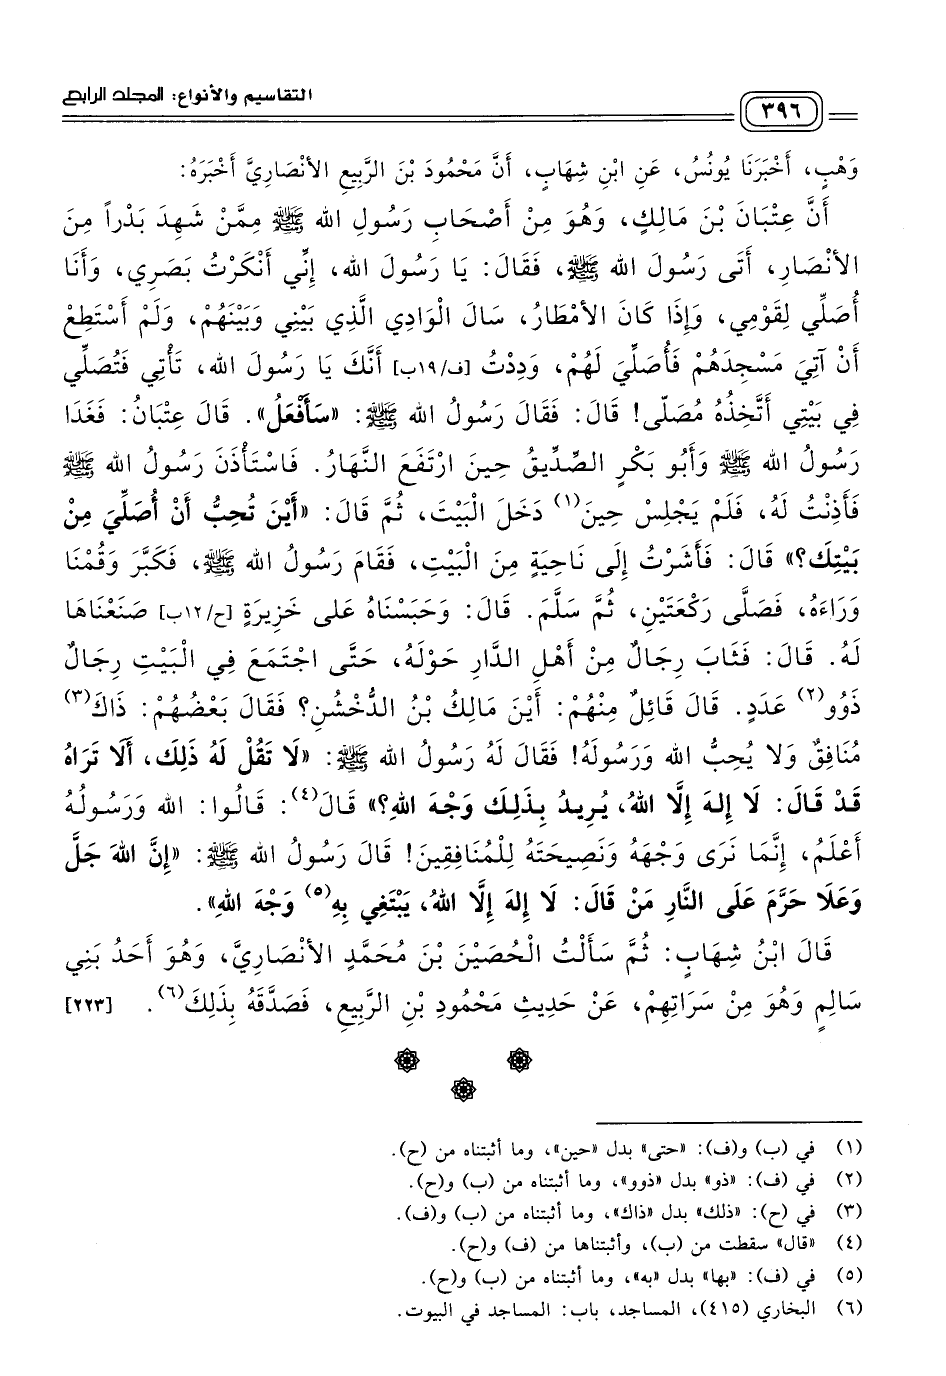 التقاسيم والأنواع: المجلد الرابع
٣٩٦
وَهْبٍ، أَخْبَرَنَا يُونُسُ، عَنِ ابْنِ شِهَابٍ، أَنَّ مَحْمُودَ بْنَ الرَّبِيعِ الأنْصَارِيَّ أَخْبَرَهُ:
أَنَّ عِتْبَانَ بْنَ مَالِكٍ، وَهُوَ مِنْ أَصْحَابِ رَسُولِ الله ﷺ مِمَّنْ شَهِدَ بَدْراً مِنَ
الأنْصَارِ، أَتَى رَسُولَ الله ﷺ، فَقَالَ: يَا رَسُولَ الله، إِنِّي أَنْكَرْتُ بَصَرِي، وَأَنَا
أُصَلِّي لِقَوْمِي، وَإِذَا كَانَ الأمْطَارُ، سَالَ الْوَادِي الَّذِي بَيْنِي وَبَيْنَهُمْ، وَلَمْ أَسْتَطِعْ
أَنْ آتِيَ مَسْجِدَهُمْ فَأُصَلِّيَ لَهُمْ، وَدِدْتُ [ف/١٩ب] أَنَّكَ يَا رَسُولَ الله، تَأْتِي فَتُصَلِّي
فِي بَيْتِي أَتَّخِذُهُ مُصَلّى! قَالَ: فَقَالَ رَسُولُ الله ﷺ: «سَأَفْعَلُ». قَالَ عِتْبَانُ: فَغَدَا
رَسُولُ الله ﷺ وَأَبُو بَكْرٍ الصِّدِّيقُ حِينَ ارْتَفَعَ النَّهَارُ. فَاسْتَأْذَنَ رَسُولُ الله ﷺ
فَأَذِنْتُ لَهُ، فَلَمْ يَجْلِسْ حِينَ(١) دَخَلَ الْبَيْتَ، ثُمَّ قَالَ: «أَيْنَ تُحِبُّ أَنْ أُصَلِّيَ مِنْ
بَيْتِكَ؟» قَالَ: فَأَشَرْتُ إِلَى نَاحِيَةٍ مِنَ الْبَيْتِ، فَقَامَ رَسُولُ الله ﷺ، فَكَبَّرَ وَقُمْنَا
وَرَاءَهُ، فَصَلَّى رَكْعَتَيْنِ، ثُمَّ سَلَّمَ. قَالَ: وَحَبَسْنَاهُ عَلى خَزِيرَةٍ [ح/١٢ب] صَنَعْنَاهَا
لَهُ. قَالَ: فَثَابَ رِجَالٌ مِنْ أَهْلِ الدَّارِ حَوْلَهُ، حَتَّى اجْتَمَعَ فِي الْبَيْتِ رِجَالٌ
ذَوُو(٢) عَدَدٍ. قَالَ قَائِلٌ مِنْهُمْ: أَيْنَ مَالِكُ بْنُ الدُّخْشُنِ؟ فَقَالَ بَعْضُهُمْ: ذَاكَ(٣)
مُنَافِقٌ وَلا يُحِبُّ الله وَرَسُولَهُ! فَقَالَ لَهُ رَسُولُ الله ﷺ: «لَا تَقُلْ لَهُ ذَلِكَ، أَلَا تَرَاهُ
قَدْ قَالَ: لَا إِلهَ إِلَّا اللهُ، يُرِيدُ بِذَلِكَ وَجْهَ اللهِ؟» قَالَ(٤): قَالُوا: الله وَرَسُولُهُ
أَعْلَمُ، إِنَّمَا نَرَى وَجْهَهُ وَنَصِيحَتَهُ لِلْمُنَافِقِينَ! قَالَ رَسُولُ الله ﷺ: «إِنَّ اللهَ جَلَّ
وَعَلَا حَرَّمَ عَلَى النَّارِ مَنْ قَالَ: لَا إِلهَ إِلَّا اللهُ، يَبْتَغِي بِهِ(٥) وَجْهَ اللهِ».
قَالَ ابْنُ شِهَابٍ: ثُمَّ سَأَلْتُ الْحُصَيْنَ بْنَ مُحَمَّدٍ الأنْصَارِيَّ، وَهُوَ أَحَدُ بَنِي
سَالِمٍ وَهُوَ مِنْ سَرَاتِهِمْ، عَنْ حَدِيثِ مَحْمُودِ بْنِ الرَّبِيعِ، فَصَدَّقَهُ بِذَلِكَ(٦). [٢٢٣]
(١) في (ب) و(ف): «حتى» بدل «حين»، وما أثبتناه من (ح).
(٢) في (ف): «ذو» بدل «ذوو»، وما أثبتناه من (ب) و(ح).
(٣) في (ح): «ذلك» بدل «ذاك»، وما أثبتناه من (ب) و(ف).
(٤) «قال» سقطت من (ب)، وأثبتناها من (ف) و(ح).
(٥) في (ف): «بها» بدل «به»، وما أثبتناه من (ب) و(ح).
(٦) البخاري (٤١٥)، المساجد، باب: المساجد في البيوت.